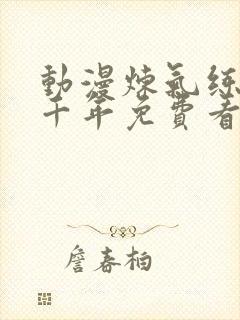 動漫煉氣練
千年免費看
詹春柏